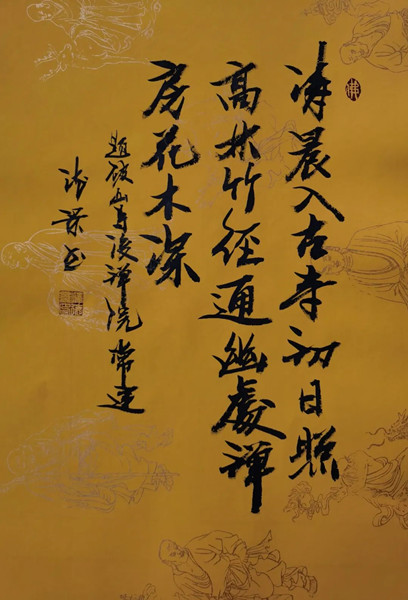 清晨入古寺初日照
高林竹径通幽處禪
房花木深
题破山寺後禅院 常建
书